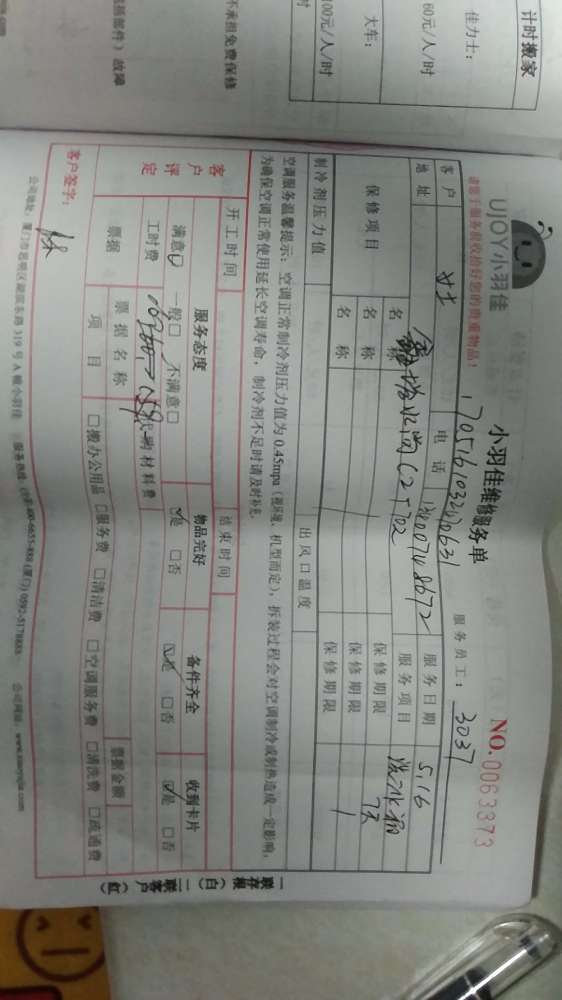 计时搬家
佳力士:
60元/人/时
大车:
00元/人/时
不承担免费保修
部件）故障
UJOY小羽佳
小羽佳维修服务单
NO.0063373
请您于服务前收拾好您的贵重物品!
服务员工: 3037
客户
电话
服务日期 5.16
地址
C2 5702
服务项目
保修项目
名称
保修期限
名称
保修期限 1
名称
保修期限
制冷剂压力值
出风口温度
空调服务温馨提示: 空调正常制冷剂压力值为 0.45mpa（视环境、机型而定），拆装过程会对空调制冷或制热造成一定影响，
为确保空调正常使用延长空调寿命，制冷剂不足时请及时补充。
开工时间
结束时间
客户评定
服务态度
物品完好
备件齐全
收到卡片
满意☑ 一般□ 不满意□
☑是 □否
☑是 □否
☑是 □否
工时费
材料费
票据
票据名称
票据金额
项目
□搬办公用品 □服务费 □清洁费 □空调服务费 □清洗费 □疏通费
客户签字:
公司地址: 厦门市思明区湖滨东路 319 号 A 幢小羽佳
服务热线: (全国)400-6655-888 (厦门) 0592-5178888
公司网站: www.xiaoyujia.com
一联存根（白） 二联客户（红）